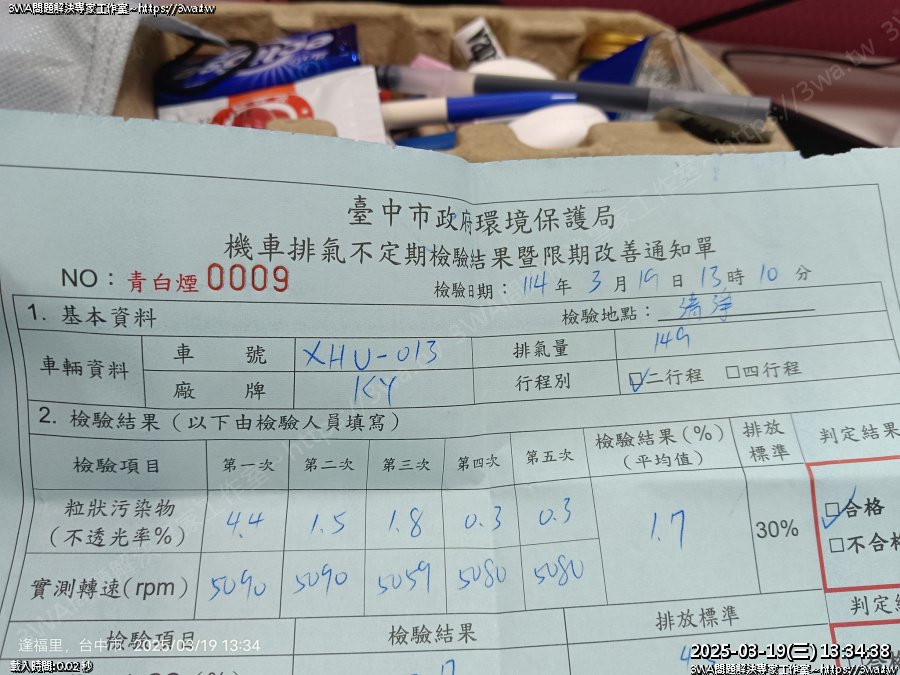 3WA問題解決專家工作室~https://3wa.tw
臺中市政府環境保護局
機車排氣不定期檢驗結果暨限期改善通知單
NO：青白煙0009
檢驗日期：114年3月19日13時10分
1. 基本資料
檢驗地點：
車輛資料 車號 XHU-013 排氣量 149
廠牌 KY 行程別 ☑二行程 □四行程
2. 檢驗結果（以下由檢驗人員填寫）
檢驗項目 第一次 第二次 第三次 第四次 第五次 檢驗結果(%)(平均值) 排放標準 判定結果
粒狀污染物(不透光率%) 4.4 1.5 1.8 0.3 0.3 1.7 30% ☑合格 □不合格
實測轉速(rpm) 5090 5090 5059 5080 5080
檢驗項目 檢驗結果 排放標準 判定結
逢福里，台中市 2025/03/19 13:34
2025-03-19(三) 13:34:38
載入時間:0.02 秒
3WA問題解決專家工作室~https://3wa.tw